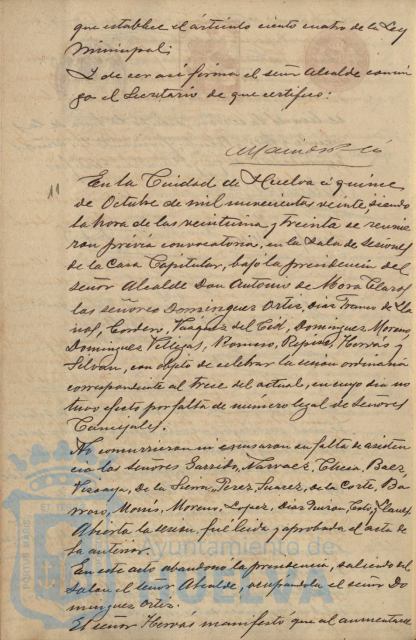 que establece el artículo ciento cuatro de la Ley
Municipal;
Y de ser así firma el señor Alcalde conmi-
go el Secretario de que certifico:
11
En la Ciudad de Huelva á quince
de Octubre de mil novecientos veinte, siendo
la hora de las veintiuna y treinta se reunie-
ron prévia convocatoria, en la Sala de Sesiones
de la Casa Capitular, bajo la presidencia del
señor Alcalde Don Antonio de Mora Claros
los señores Dominguez Ortiz, Diaz Franco de Lla-
nos, Cordero, Vazquez del Cid, Dominguez Moreno,
Dominguez Villegas, Romero, Hervás y
Silvan, con objeto de celebrar la sesion ordinaria
correspondiente al trece del actual, en cuyo dia no
tuvo efecto por falta de número legal de Señores
Concejales.
No concurrieron ni escusaron su falta de asisten-
cia los Señores Garrido, Narvaez, Checa, Baez
Vizcaya, de la Sierra, Perez, Suarez, de la Corte, Ba-
rroso, Monis, Moreno, Lopez, Diaz
Abierta la sesion, fué leida y aprobada el acta de
la anterior.
En este acto abandonó la presidencia, saliendo del
Salon el señor Alcalde, ocupandola el señor Do-
minguez Ortiz.
El señor Hervás manifestó que al aumentarse
Ayuntamiento de
HUELVA